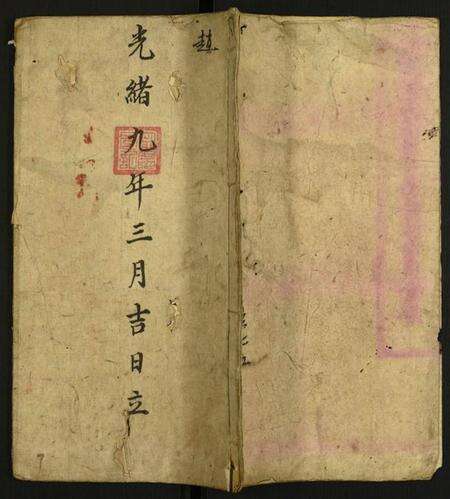 光緒九年三月吉日立
趙
7